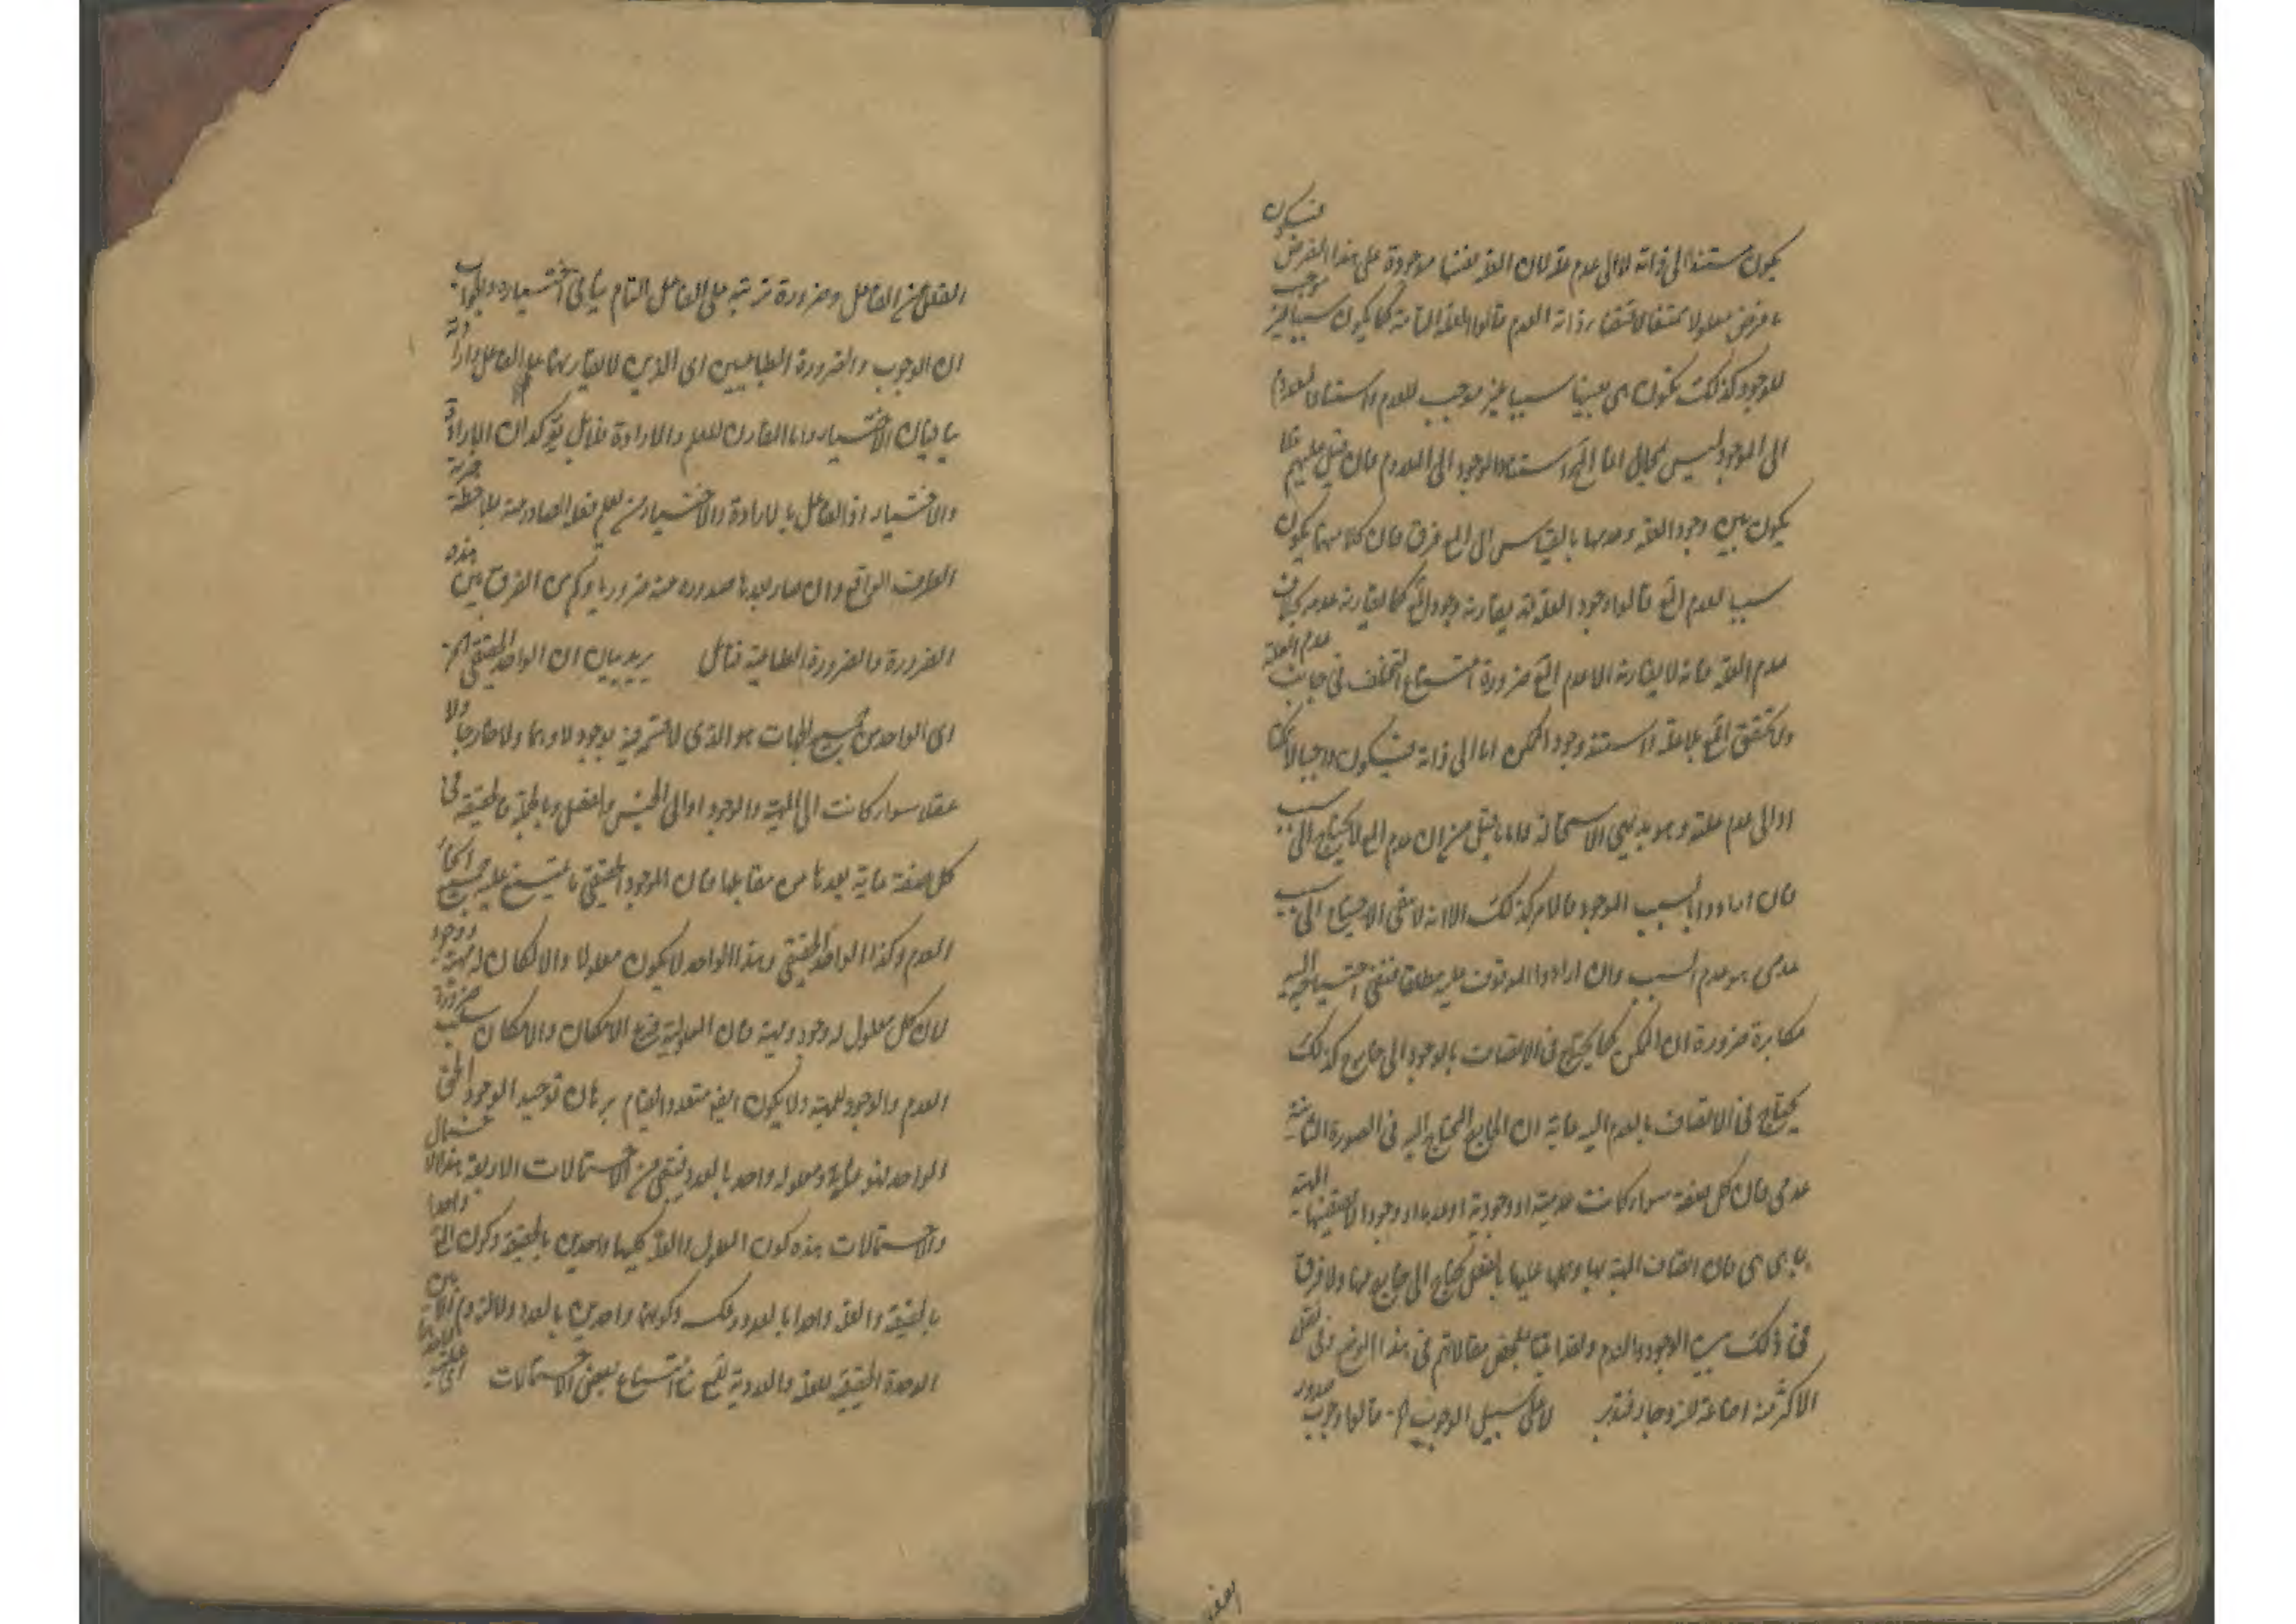 يكون مستندا الى ذاته لا الى عدم علة لان العلة نفسها موجودة على هذا الفرض فيكون
ما فرض معلولا ممتنعا لاقتضاء ذاته العدم قالوا العلة التامة كما يكون سببا غير موجب
للوجود كذلك يكون هى بعينها سببا غير موجب للعدم واستناد المعدوم
الى الموجود ليس بمحال انما المح استناد الموجود الى المعدوم فان قيل عليهم فلا
يكون بين وجود العلة وعدمها بالقياس الى المع فرق فان كلا منهما يكون
سببا لعدم المع قالوا وجود العلة قد يقارنه وجود المع كما يقارنه عدمه بخلاف
عدم العلة فانه لا يقارنه الا عدم المع ضرورة امتناع التخلف فى جانب عدم العلة
ولا تحقق المع بلا علة او استند وجود الممكن اما الى ذاته فيكون واجبا لا ممكنا
او الى عدم علته وهو بديهى الاستحالة واما ما قيل من ان عدم المع لا يحتاج الى سبب
فان ارادوا بالسبب الموجود فالامر كذلك الا انه لا ينفى الاحتياج الى سبب
عدمى هو عدم السبب وان ارادوا الموقوف عليه مطلقا فنفى احتياجه اليه
مكابرة ضرورة ان الممكن كما يحتاج فى الاتصاف بالوجود الى جامع كذلك
يحتاج فى الاتصاف بالعدم اليه غايته ان الجامع المحتاج اليه فى الصورة الثانية
عدمى فان كل صفة سواء كانت عدمية او وجودية او عدما او وجودا لا تقتضيها المهية
بما هى هى فان اتصاف المهية بها وحملها عليها بالفعل يحتاج الى جامع لهما ولا فرق
فى ذلك بين الوجود والعدم ولقد اتينا بمحض مقالاتهم فى هذا الموضع وفى نقل
الاكثر منه اضاعة للزوجاء فتدبر لا على سبيل الوجوب الخ قالوا وجوب صدور
الفعل من الفاعل وضرورة ترتبه على الفاعل التام ينافى اختياره والجواب
ان الوجوب والضرورة الطباعيين اى الذين لا يقارنهما علم الفاعل وارادته
ينافيان الاختيار واما المقارن للعلم والارادة فذلك يؤكدان الارادة
والاختيار اذ الفاعل بالارادة والاختيار من يعلم فعله الصادر منه بملاحظة خيرية
الطرف الواقع وان صار بعدها صدوره منه ضروريا وكم من الفرق بين هذه
الضرورة والضرورة الطباعية فتأمل يريد بيان ان الواحد الحقيقى الخ
اى الواحد من جميع الجهات هو الذى لا قسمة فيه بوجه لا وهما ولا خارجا ولا
عقلا سواء كانت الى المهية والوجود او الى الجنس والفصل وبالجملة فالحقيقة فى
كل صفة غاية بعدها من مقابلها فان الموجود الحقيقى ما يمتنع عليه جميع انحاء
العدم وكذا الواحد الحقيقى وهذا الواحد لا يكون معلولا والا لكان له مهية ووجود
لان كل معلول له وجود ومهية فان المعلولية فرع الامكان والامكان سلب ضرورة
العدم والوجود للمهية ولا يكون ايضا متعددا لقيام برهان توحيد الوجود الحق
الواحد لنوعه علة ومعلوله واحد بالعدد فينتفى من الاحتمالات الاربعة هذا الاحتمال
والاحتمالات هذه كون المعلول والعلة كليهما واحدين بالحقيقة وكون المع واحدا
بالحقيقة والعلة واحدا بالعدد وعكسه وكونهما واحدين بالعدد ولا لزوم بين
الوحدة الحقيقية للعلة والعددية للمع مع امتناع بعض الاحتمالات اى علته